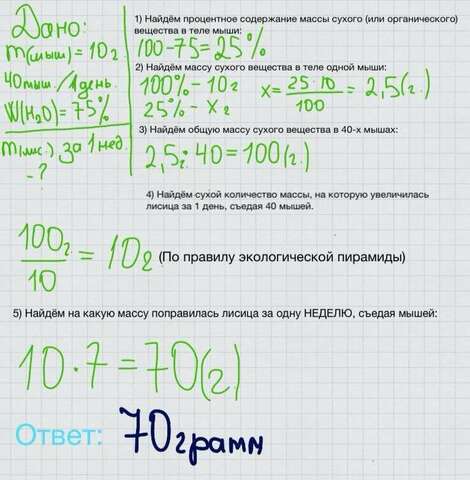 Дано:
m(мыш) = 10 г.
40 мыш. / 1 день.
W(H₂O) = 75%
m(лис.) за 1 нед.
- ?
1) Найдём процентное содержание массы сухого (или органического)
вещества в теле мыши:
100-75 = 25%
2) Найдём массу сухого вещества в теле одной мыши:
100% - 10 г
25% - x г
x = 25 · 10 / 100 = 2,5(г.)
3) Найдём общую массу сухого вещества в 40-х мышах:
2,5г · 40 = 100(г.)
4) Найдём сухой количество массы, на которую увеличилась
лисица за 1 день, съедая 40 мышей.
100г / 10 = 10г (По правилу экологической пирамиды)
5) Найдём на какую массу поправилась лисица за одну НЕДЕЛЮ, съедая мышей:
10 · 7 = 70(г)
Ответ: 70 грамм